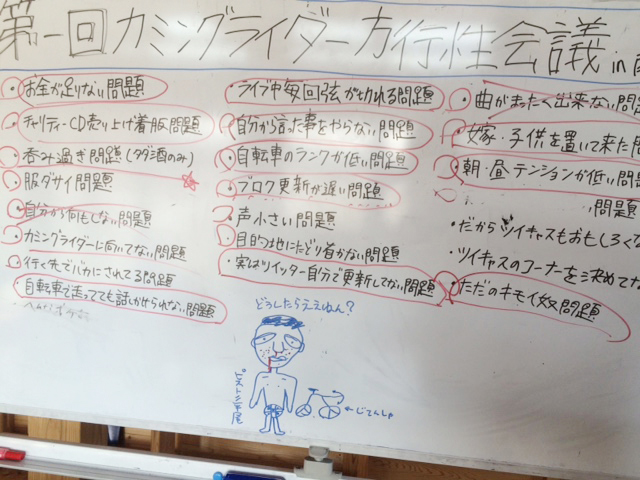 第一回カミングライダー方行性会議 in
・お金が足りない問題
・チャリティーCD売り上げ着服問題
・呑み過ぎ問題(タダ酒のみ)
・服ダサイ問題
・自分から何もしない問題
・カミングライダーに向いてない問題
・行く先でバカにされてる問題
自転車で走ってても話しかけられない問題
・ライブ中毎回弦が切れる問題
・自分から言った事をやらない問題
・自転車のランクが低い問題
・ブログ更新が遅い問題
・声小さい問題
・目的地にたどり着かない問題
・実はツイッター自分で更新してない問題
・曲がまったく出来ない問
・嫁・子供を置いて来た問
・朝・昼テンションが低い問題
問題
・だからツイキャスもおもしろくな
・ツイキャスのコーナーを決めてな
・ただのキモイ奴問題
どうしたらええねん?
←じてんしゃ